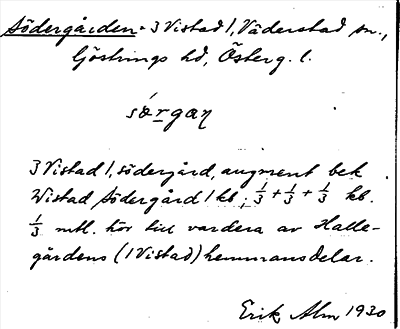 Södergården - 3 Vistad 1, Väderstad sn.,
Göstrings hd, Österg. l.
sǿrgaɳ
3 Vistad 1, södergård, augment bek
Wistad Södergård 1 kb; 1/3 + 1/3 + 1/3 kb.
1/3 mtl. hör till vardera av Halle-
gårdens (1 Vistad) hemmansdelar.
Erik Alm 1930